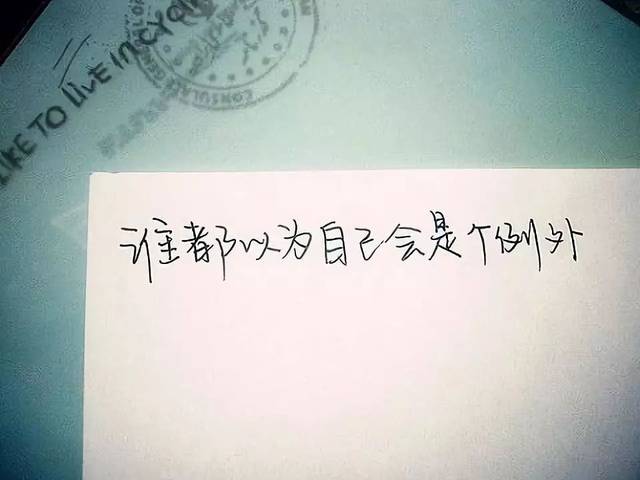 LIKE TO LIVE IN
CONSULATE GENERAL
谁都以为自己会是个例外